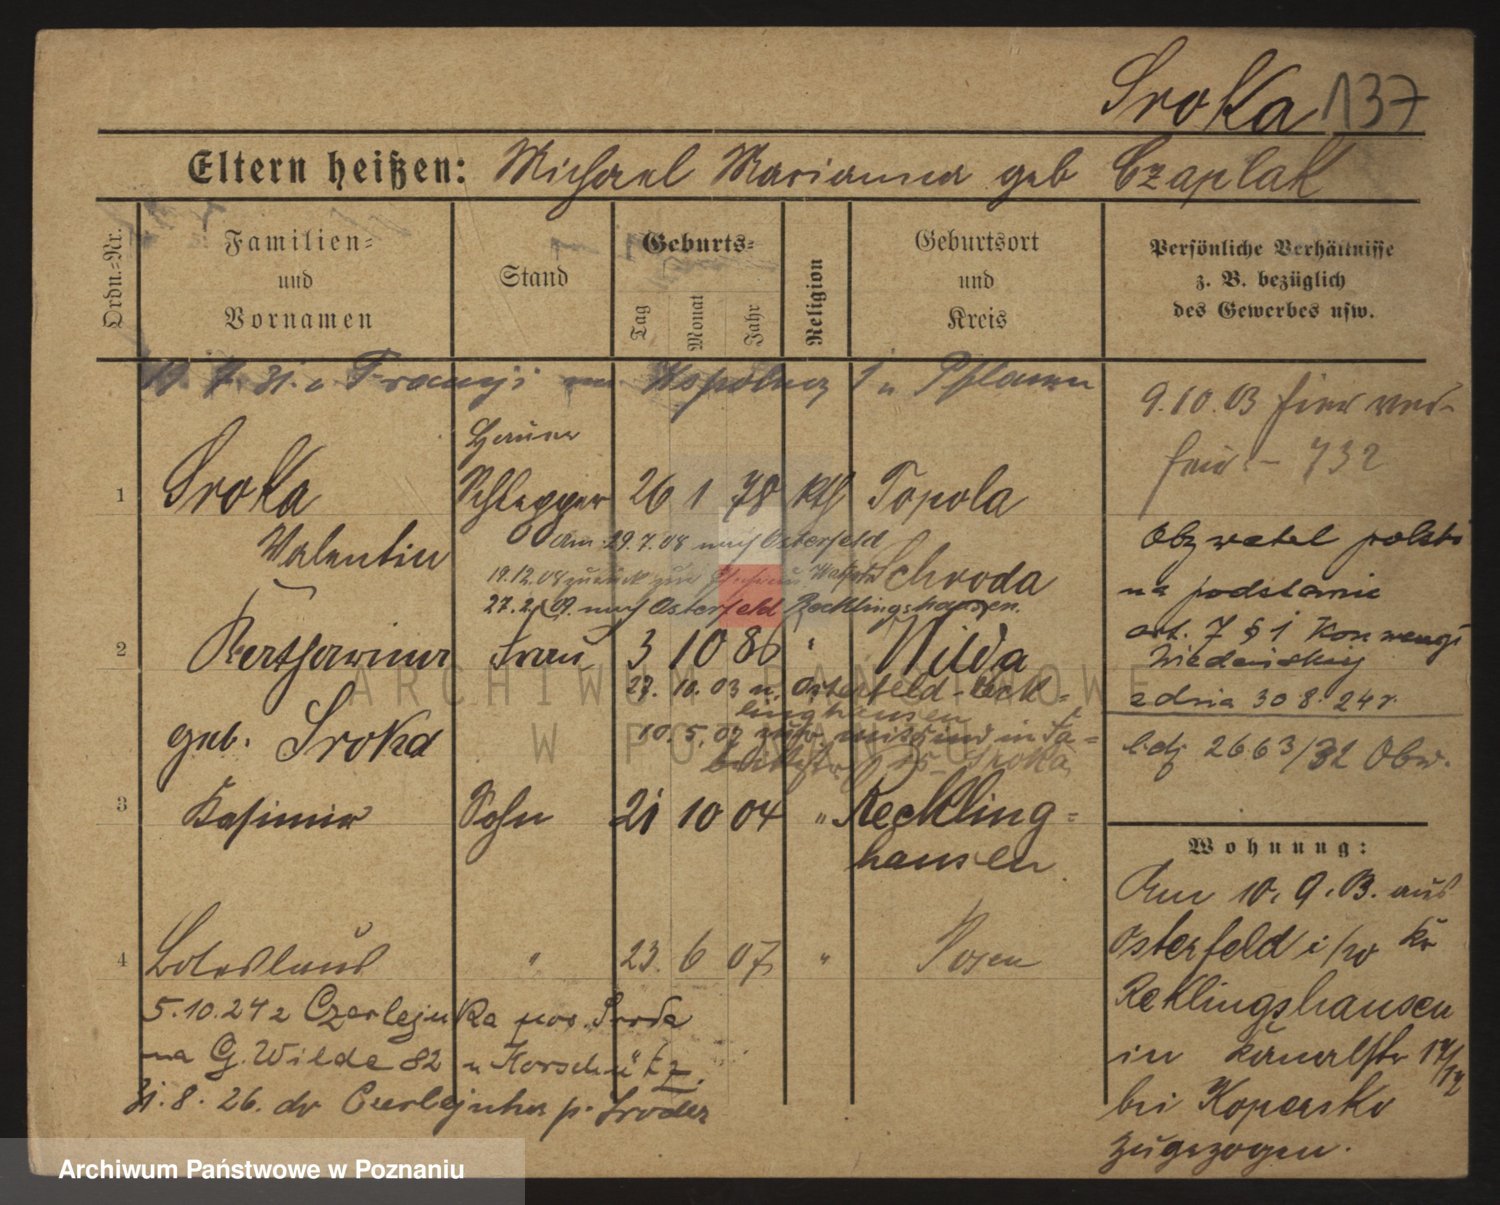 Sroka 137
Eltern heißen: Michael Marianna geb Czaplak
Ordn.=Nr.
Familien=
und
Vornamen
Stand
Geburts=
Tag
Monat
Jahr
Religion
Geburtsort
und
Kreis
Persönliche Verhältnisse
z. B. bezüglich
des Gewerbes usw.
19. 7. 31. z Francji
9.10.03 hier
732
Hauer
1 Sroka Schlepper 26 1 78 kth Topola
Valentin
Am 29.7.08 nach Osterfeld
Schroda
19.12.08 zurück zur
27.2.09. nach Osterfeld Recklingshausen.
2 Katharina Frau 3 10 86 " Wilda
27. 10. 03 n. Osterfeld-Reck=
linghausen
geb. Sroka
10. 5. 07
3 Kasimir Sohn 21 10 04 " Reckling=
hausen.
4 Boleslaus " 23. 6 07 " Posen
5.10.24 z Czerlejnka pow. Środa
na G. Wilde 82 u Korschütz.
31. 8. 26. do Czerlejnka p. Środa
Obywatel polski
na podstawie
art. 7 § 1 Konwencji
Wiedeńskiej
z dnia 30 8. 24 r.
2663/32 Obw.
Wohnung:
Am 10. 9. 03. aus
Osterfeld i/w Kr
Recklingshausen
in Kanalstr 17/
bei
zugezogen.
ARCHIWUM PAŃSTWOWE
W POZNANIU
Archiwum Państwowe w Poznaniu